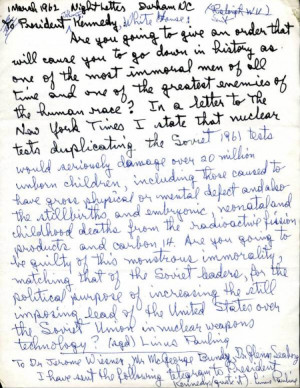 1 March 1962 Night Letter Durham NC
To President Kennedy, White House:
Are you going to give an order that
will cause you to go down in history as
one of the most immoral men of all
time and one of the greatest enemies of
the human race? In a letter to The
New York Times I state that nuclear
tests duplicating the Soviet 1961 tests
would seriously damage over 20 million
unborn children, including those caused to
have gross physical or mental defect and also
the stillbirths and embryonic, neonatal and
childhood deaths from the radioactive fission
products and carbon 14. Are you going to
be guilty of this monstrous immorality,
matching that of the Soviet leaders, for the
political purpose of increasing the still
imposing lead of the United States over
the Soviet Union in nuclear weapons
technology? (sgd) Linus Pauling
To Dr Jerome Wiesner, Mr McGeorge Bundy, Dr Glenn Seaborg:
I have sent the following telegram to President
Kennedy (quote it)